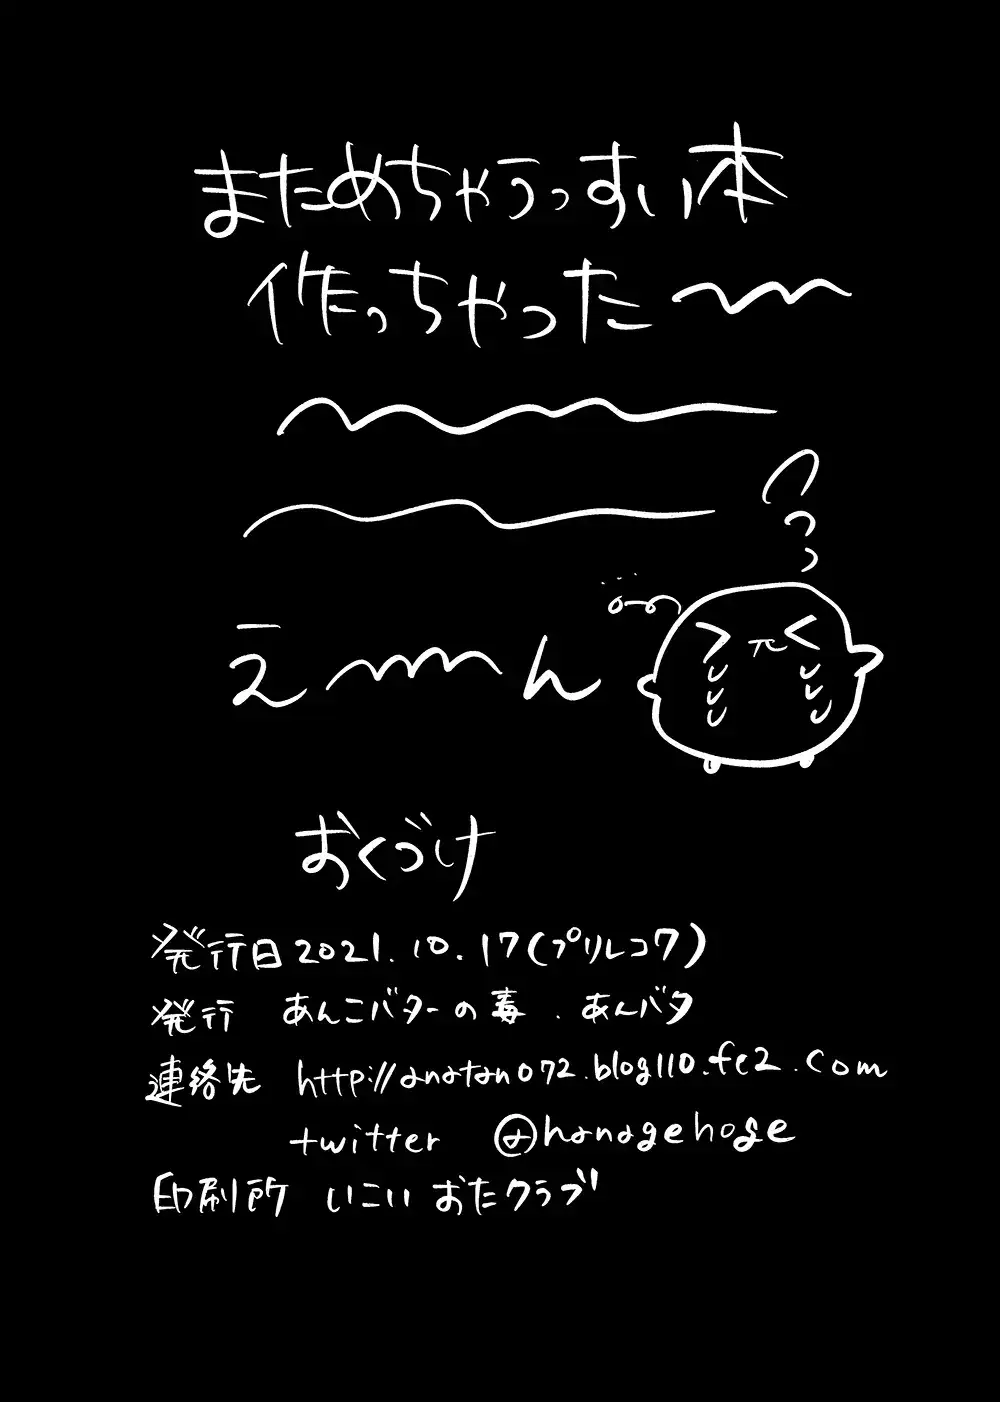 まためちゃうっすい本
作っちゃった〜
え〜ん
おくづけ
発行日 2021.10.17(プリレコ7)
発行 あんこバターの毒.あんバタ
連絡先 http://anatan072.blog110.fc2.com
twitter @hanagehoge
印刷所 いこい おたクラブ